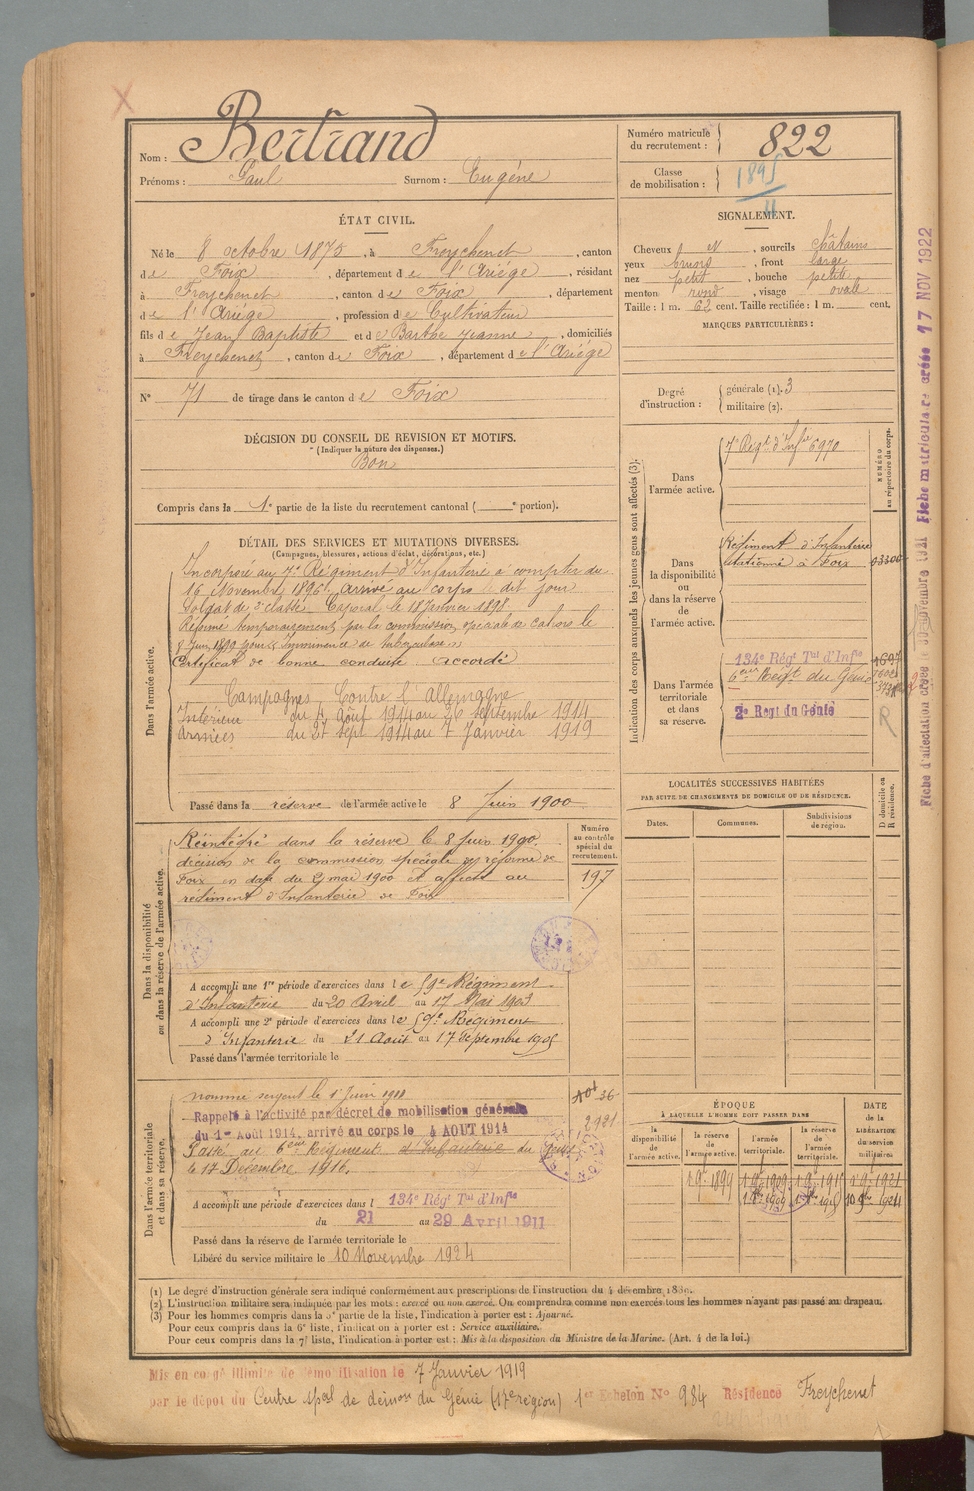 Nom : Bertrand
Prénoms : Paul Surnom : Eugène
Numéro matricule du recrutement : 822
Classe de mobilisation : 1895
ÉTAT CIVIL.
Né le 8 octobre 1875, à Freychenet, canton
de Foix, département de l'Ariége, résidant
à Freychenet, canton de Foix, département
de l'Ariége, profession de Cultivateur
fils de Jean Baptiste et de Barthe Jeanne, domiciliés
à Freychenet, canton de Foix, département de l'Ariége
N° 71 de tirage dans le canton de Foix
SIGNALEMENT.
Cheveux et, sourcils châtains
yeux bruns, front large
nez petit, bouche petite
menton rond, visage ovale
Taille : 1 m. 62 cent. Taille rectifiée : 1 m. cent.
MARQUES PARTICULIÈRES :
Degré d'instruction : générale (1). 3
militaire (2).
DÉCISION DU CONSEIL DE REVISION ET MOTIFS.
(Indiquer la nature des dispenses.)
Bon
Compris dans la 1e partie de la liste du recrutement cantonal ( e portion).
DÉTAIL DES SERVICES ET MUTATIONS DIVERSES.
(Campagnes, blessures, actions d'éclat, décorations, etc.)
Dans l'armée active.
Incorporé au 7e Régiment d'Infanterie à compter du
16 Novembre 1896. arrivé au corps dit jour
Soldat de 2e classe. Caporal le 18 Janvier 1898.
Réformé temporairement par la commission spéciale de Cahors le
8 Juin 1899 pour "Imminence de tuberculose"
Certificat de bonne conduite accordé
Campagnes Contre l'Allemagne
Intérieur du 4 Août 1914 au 26 septembre 1914
Armées du 27 sept 1914 au 7 Janvier 1919
Passé dans la réserve de l'armée active le 8 Juin 1900
Indication des corps auxquels les jeunes gens sont affectés (3).
NUMÉRO au répertoire du corps.
Dans l'armée active.
7e Régt d'Infie 6970
Dans la disponibilité ou dans la réserve de l'armée active.
Régiment d'Infanterie
stationné à Foix 03300
Dans l'armée territoriale et dans sa réserve.
134e Régt Tal d'Infie
6eme Régt du Génie
2e Regt du Génie
R
Fiche d'affectation créée le novembre 1921 Fiche matriculaire créée 17 NOV 1922
LOCALITÉS SUCCESSIVES HABITÉES
PAR SUITE DE CHANGEMENTS DE DOMICILE OU DE RÉSIDENCE.
Dates. Communes. Subdivisions de région. D domicile ou R résidence.
Dans la disponibilité ou dans la réserve de l'armée active.
Numéro au contrôle spécial du recrutement.
197
Réintégré dans la réserve le 8 Juin 1900.
décision de la commission spéciale de réforme de
Foix en date du 2 mai 1900 et affecté au
régiment d'Infanterie de Foix
A accompli une 1re période d'exercices dans le 59e Régiment
d'Infanterie du 20 Avril au 17 Mai 1903
A accompli une 2e période d'exercices dans le 59e Régiment
d'Infanterie du 21 Août au 17 Septembre 1905
Passé dans l'armée territoriale le
Dans l'armée territoriale et dans sa réserve.
nommé sergent le 1 Juin 1911
Rappelé à l'activité par décret de mobilisation générale
du 1er Août 1914, arrivé au corps le 4 AOUT 1914
Passé au 6eme Régiment d'Infanterie du Génie
le 17 Décembre 1916.
36
2921
A accompli une période d'exercices dans l 134e Régt Tal d'Infie
du 21 au 29 Avril 1911
Passé dans la réserve de l'armée territoriale le
Libéré du service militaire le 10 Novembre 1924
ÉPOQUE
À LAQUELLE L'HOMME DOIT PASSER DANS
la disponibilité de l'armée active. la réserve de l'armée active. l'armée territoriale. la réserve de l'armée territoriale.
DATE de la LIBÉRATION du service militaire.
1 9e 1899 1 9e 1909 1 9e 1915 1 9e 1921
(1) Le degré d'instruction générale sera indiqué conformément aux prescriptions de l'instruction du 4 décembre 1889.
(2) L'instruction militaire sera indiquée par les mots : exercé ou non exercé. On comprendra comme non exercés tous les hommes n'ayant pas passé au drapeau.
(3) Pour les hommes compris dans la 5e partie de la liste, l'indication à porter est : Ajourné.
Pour ceux compris dans la 6e liste, l'indication à porter est : Service auxiliaire.
Pour ceux compris dans la 7e liste, l'indication à porter est : Mis à la disposition du Ministre de la Marine. (Art. 4 de la loi.)
Mis en congé illimité de démobilisation le 7 Janvier 1919
par le dépôt du Centre spal de démon du Génie (17e région) 1er Echelon N° 984 Résidence Freychenet